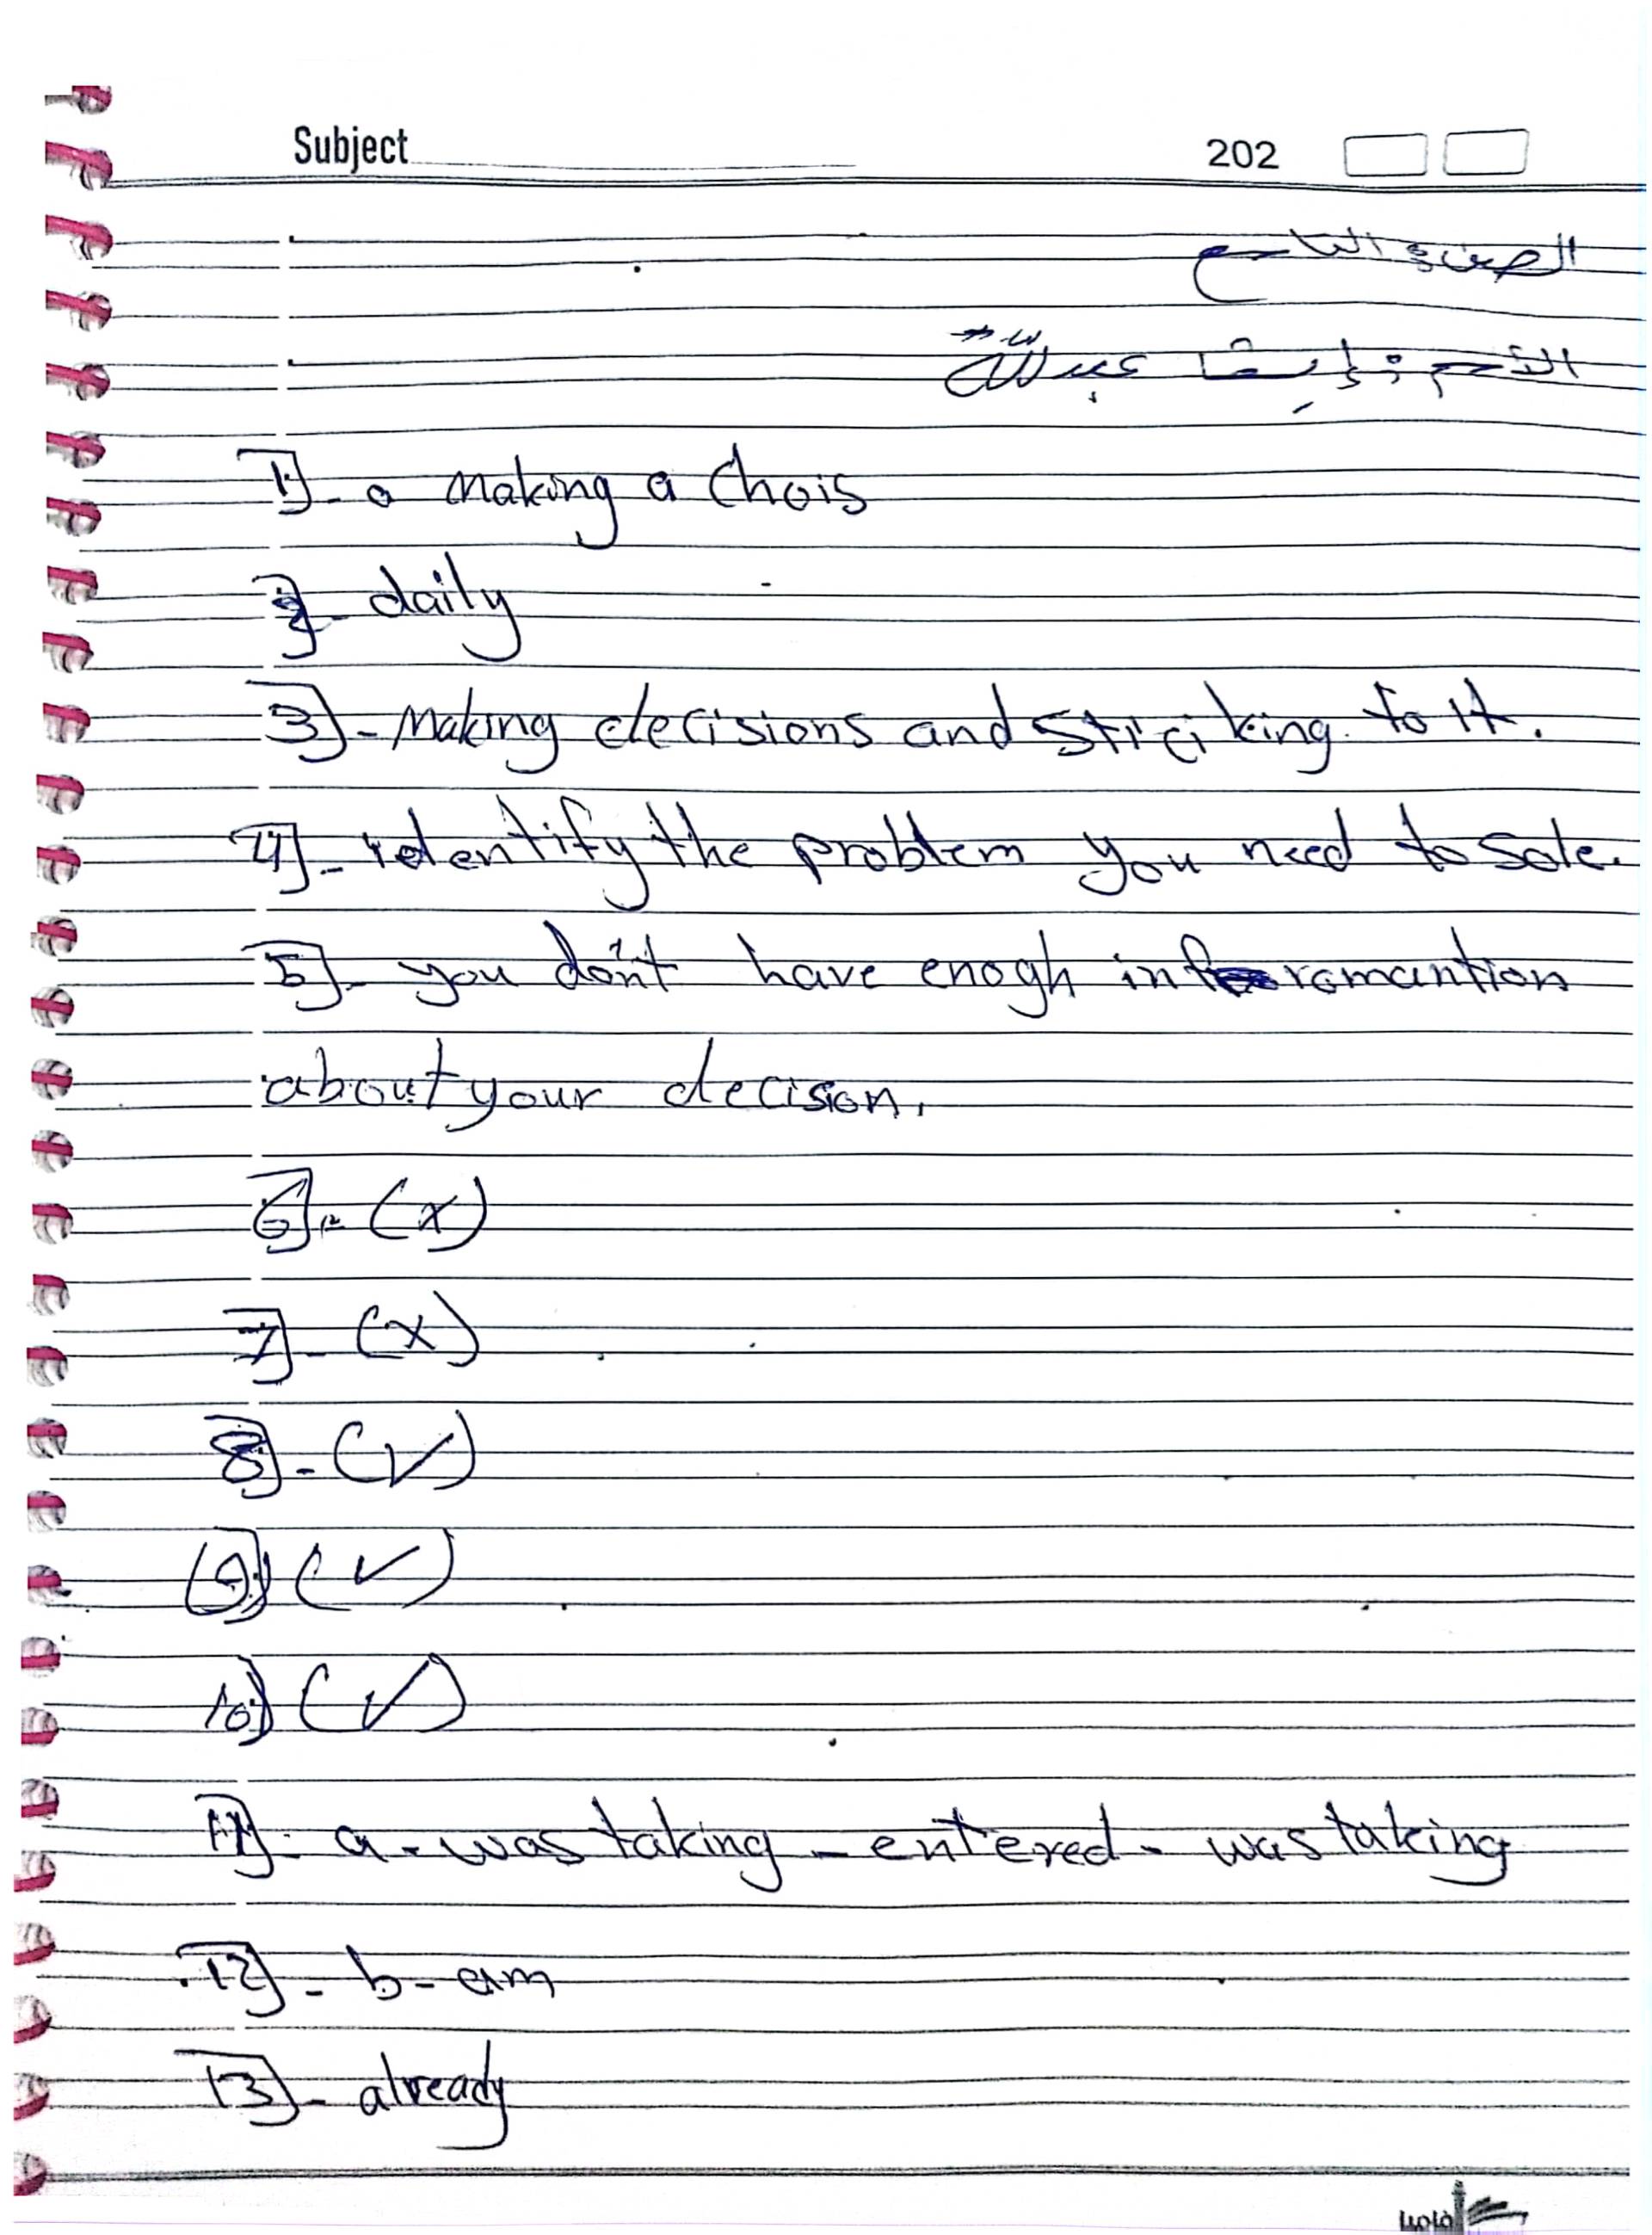 Subject 202
الصف التاسع
الاسم : إيقا عبدالله
1]- a making a Chois
2]- daily
3]- Making decisions and Striciking to it.
4]- identify the problem you need to sole.
5]- you don't have enogh inforomantion
about your decision.
6]- (x)
7]- (x)
8]- (✓)
(9) (✓)
10) (✓)
11]- a - was taking - entered - was taking
12]- b- am
13]- already